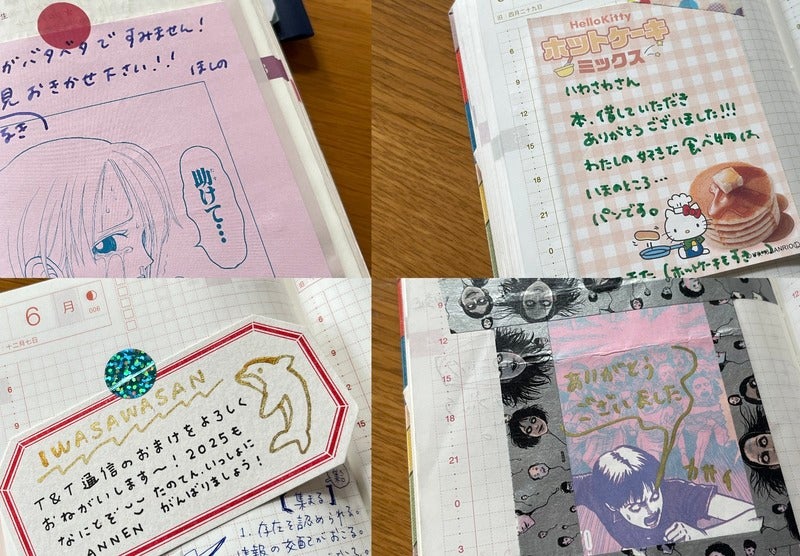 がバタバタで すみません!
見 おきかせ下さい!!
ほしの
助けて…
旧 四月二十九日
HelloKitty
ホットケーキ
ミックス
いわさわさん
本、借していただき
ありがとうございました!!!
わたしの好きな食べ物は、
いまのところ…
パンです。
(ホットケーキもすき)
6
9
12
15
18
21
6月
006
十二月七日
IWASAWASAN
T&T通信のおまけをよろしく
おねがいします〜! 2025も
なにとぞ たのてん、いっしょに
ANNEN がんばりましょう!
【集まる】
1. 存在を認められる。
情報の交配がおこる。
ありがとう
ございました
カガイ
9
12
15
18
21
0
3